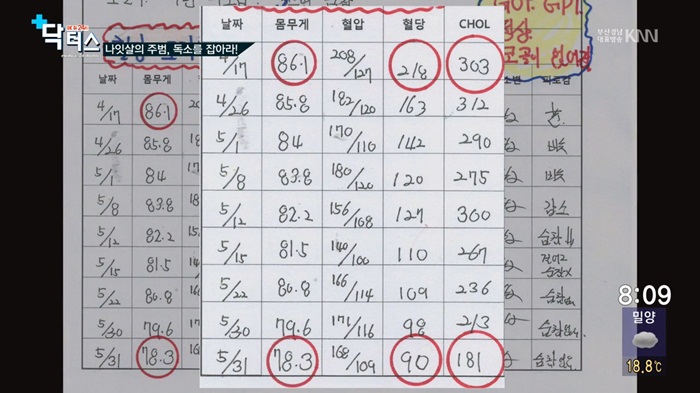 닥터스
나잇살의 주범, 독소를 잡아라!
부산경남 대표방송 KNN
GOT GPT
날짜 몸무게 혈압 혈당 CHOL
4/17 86.1 208/127 218 303
4/26 85.8 182/120 163 312
5/1 84 170/110 142 290
5/8 83.8 180/120 120 275
5/12 82.2 156/108 127 300
5/15 81.5 140/100 110 267
5/22 80.8 166/114 109 236
5/30 79.6 171/116 98 213
5/31 78.3 168/109 90 181
날짜 몸무게
4/17 86.1
4/26 85.8
5/1 84
5/8 83.8
5/12 82.2
5/15 81.5
5/22 80.8
5/30 79.6
5/31 78.3
감소
8:09
밀양
18.8℃